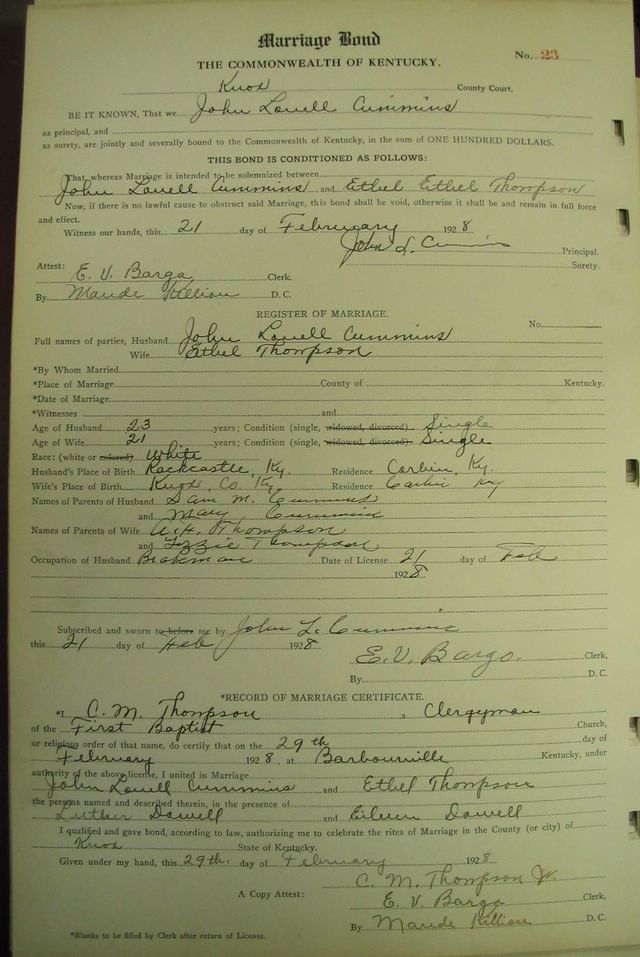 Marriage Bond
No. 23
THE COMMONWEALTH OF KENTUCKY.
Knox County Court.
BE IT KNOWN, That we John Lowell Cummins
as principal, and
as surety, are jointly and severally bound to the Commonwealth of Kentucky, in the sum of ONE HUNDRED DOLLARS.
THIS BOND IS CONDITIONED AS FOLLOWS:
That, whereas Marriage is intended to be solemnized between
John Lowell Cummins and Ethel Ethel Thompson
Now, if there is no lawful cause to obstruct said Marriage, this bond shall be void, otherwise it shall be and remain in full force
and effect.
Witness our hands, this 21 day of February 1928
John L. Cummins Principal.
Surety.
Attest:
E. V. Bargo Clerk.
By Maude Killion D. C.
REGISTER OF MARRIAGE.
No.
Full names of parties, Husband John Lowell Cummins
Wife Ethel Thompson
*By Whom Married
*Place of Marriage County of Kentucky.
*Date of Marriage
*Witnesses and
Age of Husband 23 years; Condition (single, widowed, divorced) Single
Age of Wife 21 years; Condition (single, widowed, divorced) Single
Race: (white or colored) White
Husband's Place of Birth Rockcastle, Ky. Residence Corbin, Ky.
Wife's Place of Birth Knox, Co. Ky. Residence Corbin Ky
Names of Parents of Husband Sam M. Cummins
and Mary Cummins
Names of Parents of Wife Thompson
and Lizzie Thompson
Occupation of Husband Brakeman Date of License 21 day of Feb
1928
Subscribed and sworn to before me by John L. Cummins
this 21 day of Feb 1928
E. V. Bargo. Clerk,
By D. C.
*RECORD OF MARRIAGE CERTIFICATE.
*I C. M. Thompson a Clergyman
of the First Baptist Church,
or religious order of that name, do certify that on the 29th day of
February 1928, at Barbourville Kentucky, under
authority of the above license, I united in Marriage
John Lowell Cummins and Ethel Thompson
the persons named and described therein, in the presence of
Luther Dowell and Eileen Dowell
I qualified and gave bond, according to law, authorizing me to celebrate the rites of Marriage in the County (or city) of
Knox State of Kentucky.
Given under my hand, this 29th. day of February 1928
C. M. Thompson Jr.
A Copy Attest: E. V. Bargo Clerk,
By Maude Killion D. C.
*Blanks to be filled by Clerk after return of License.